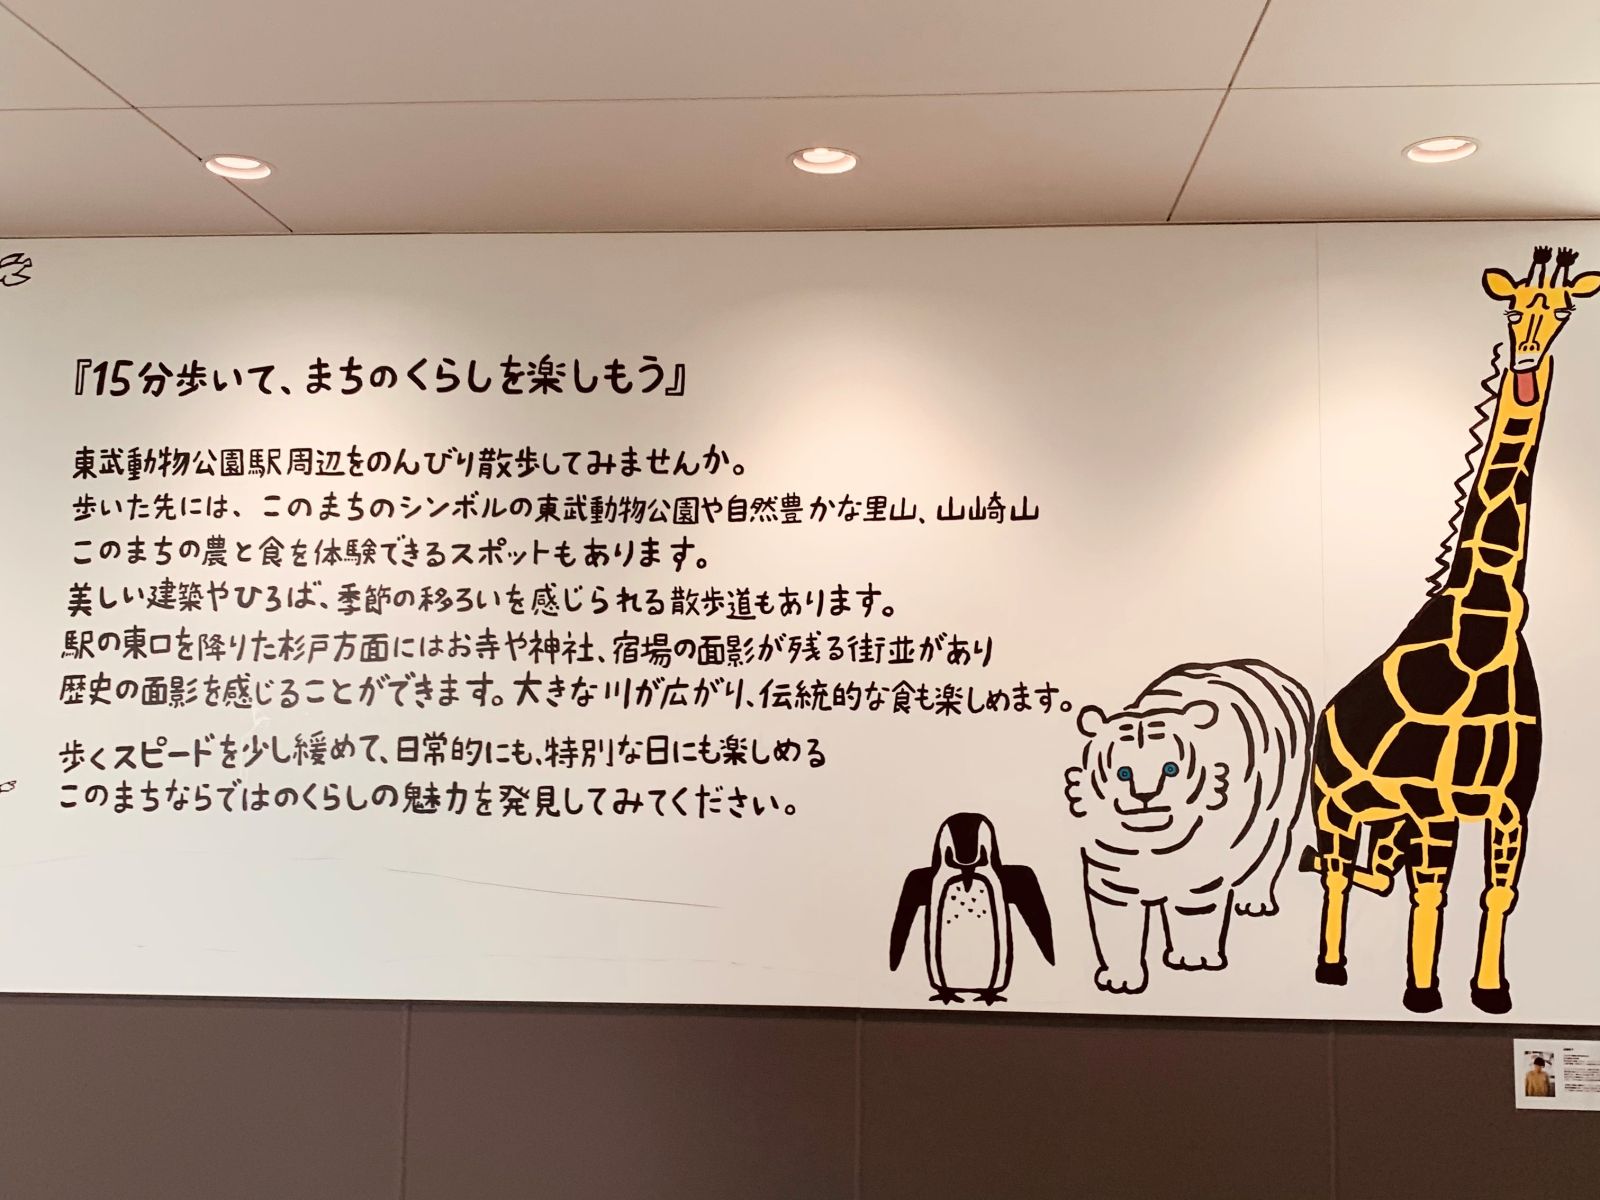 『15分歩いて、まちのくらしを楽しもう』
東武動物公園駅周辺をのんびり散歩してみませんか。
歩いた先には、このまちのシンボルの東武動物公園や自然豊かな里山、山崎山
このまちの農と食を体験できるスポットもあります。
美しい建築やひろば、季節の移ろいを感じられる散歩道もあります。
駅の東口を降りた杉戸方面にはお寺や神社、宿場の面影が残る街並があり
歴史の面影を感じることができます。大きな川が広がり、伝統的な食も楽しめます。
歩くスピードを少し緩めて、日常的にも、特別な日にも楽しめる
このまちならではのくらしの魅力を発見してみてください。